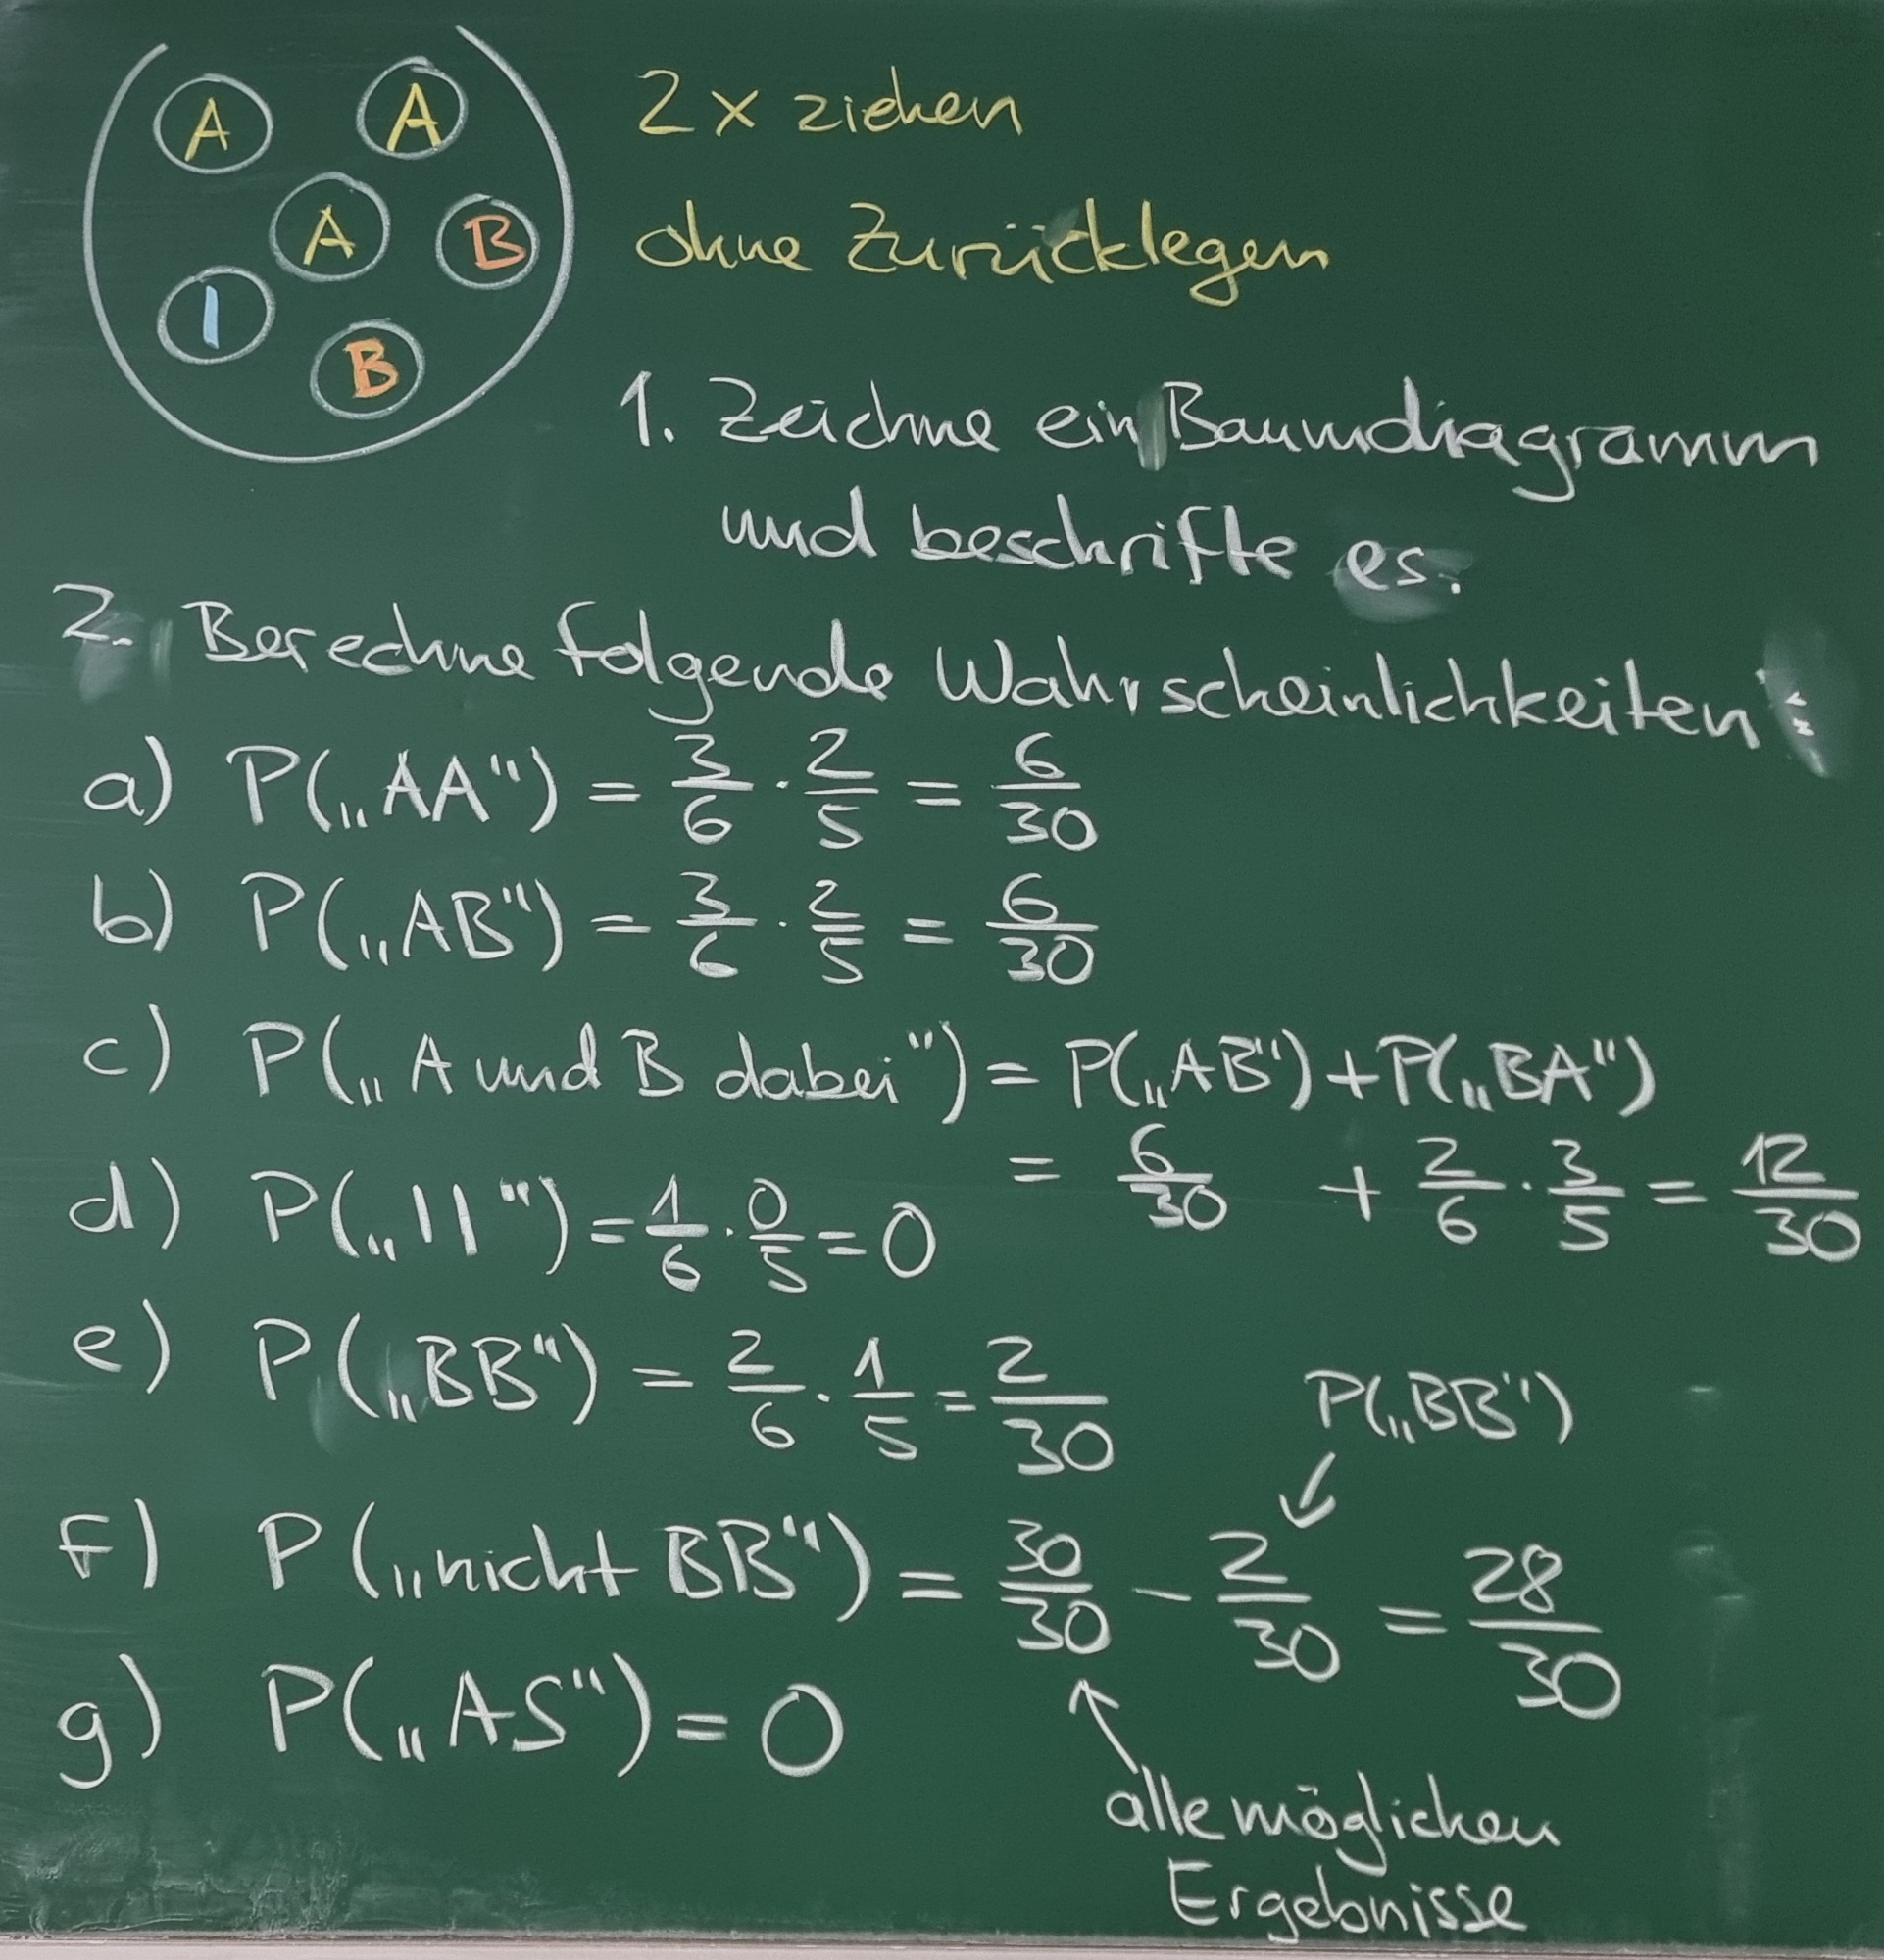 A A
A B
I
B
2 x ziehen
ohne Zurücklegen
1. Zeichne ein Baumdiagramm
und beschrifte es.
2. Berechne folgende Wahrscheinlichkeiten:
a) P(„AA“) = 3/6 · 2/5 = 6/30
b) P(„AB“) = 3/6 · 2/5 = 6/30
c) P(„A und B dabei“) = P(„AB“) + P(„BA“)
= 6/30 + 2/6 · 3/5 = 12/30
d) P(„II“) = 1/6 · 0/5 = 0
e) P(„BB“) = 2/6 · 1/5 = 2/30
P(„BB“)
f) P(„nicht BB“) = 30/30 - 2/30 = 28/30
g) P(„AS“) = 0
alle möglichen
Ergebnisse